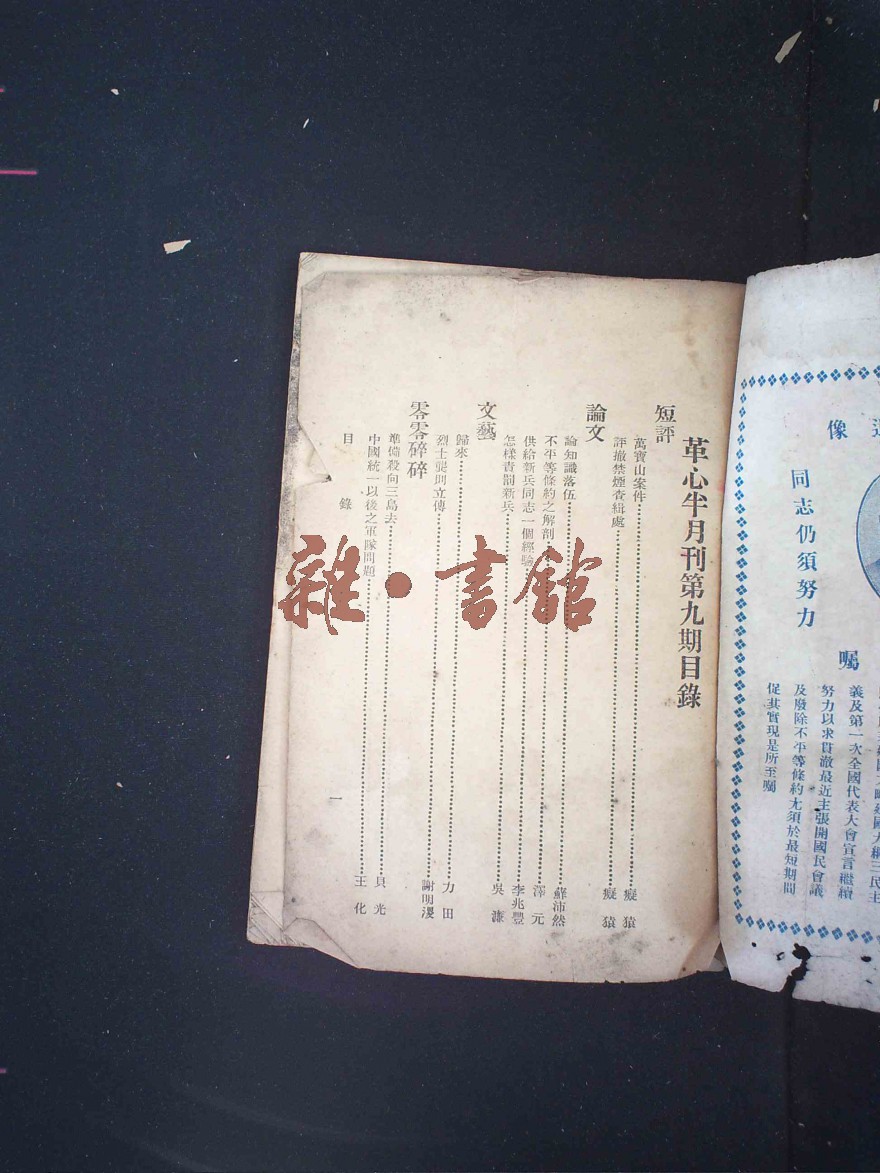 像
同志仍須努力
囑
義及第一次全國代表大會宣言繼續
努力以求貫澈最近主張開國民會議
及廢除不平等條約尤須於最短期間
促其實現是所至囑
革心半月刊第九期目錄
短評
萬寶山案件 癡猿
評撤禁煙查緝處 癡猿
論文
論知識落伍 蘇沛然
不平等條約之解剖 澤元
供給新兵同志一個經驗 李兆豐
怎樣責罰新兵 吳濂
文藝
歸來 力田
烈士龔則立傳 謝明漫
零零碎碎
準備殺向三島去 貝光
中國統一以後之軍隊問題 王化
目錄
一
雜·書館